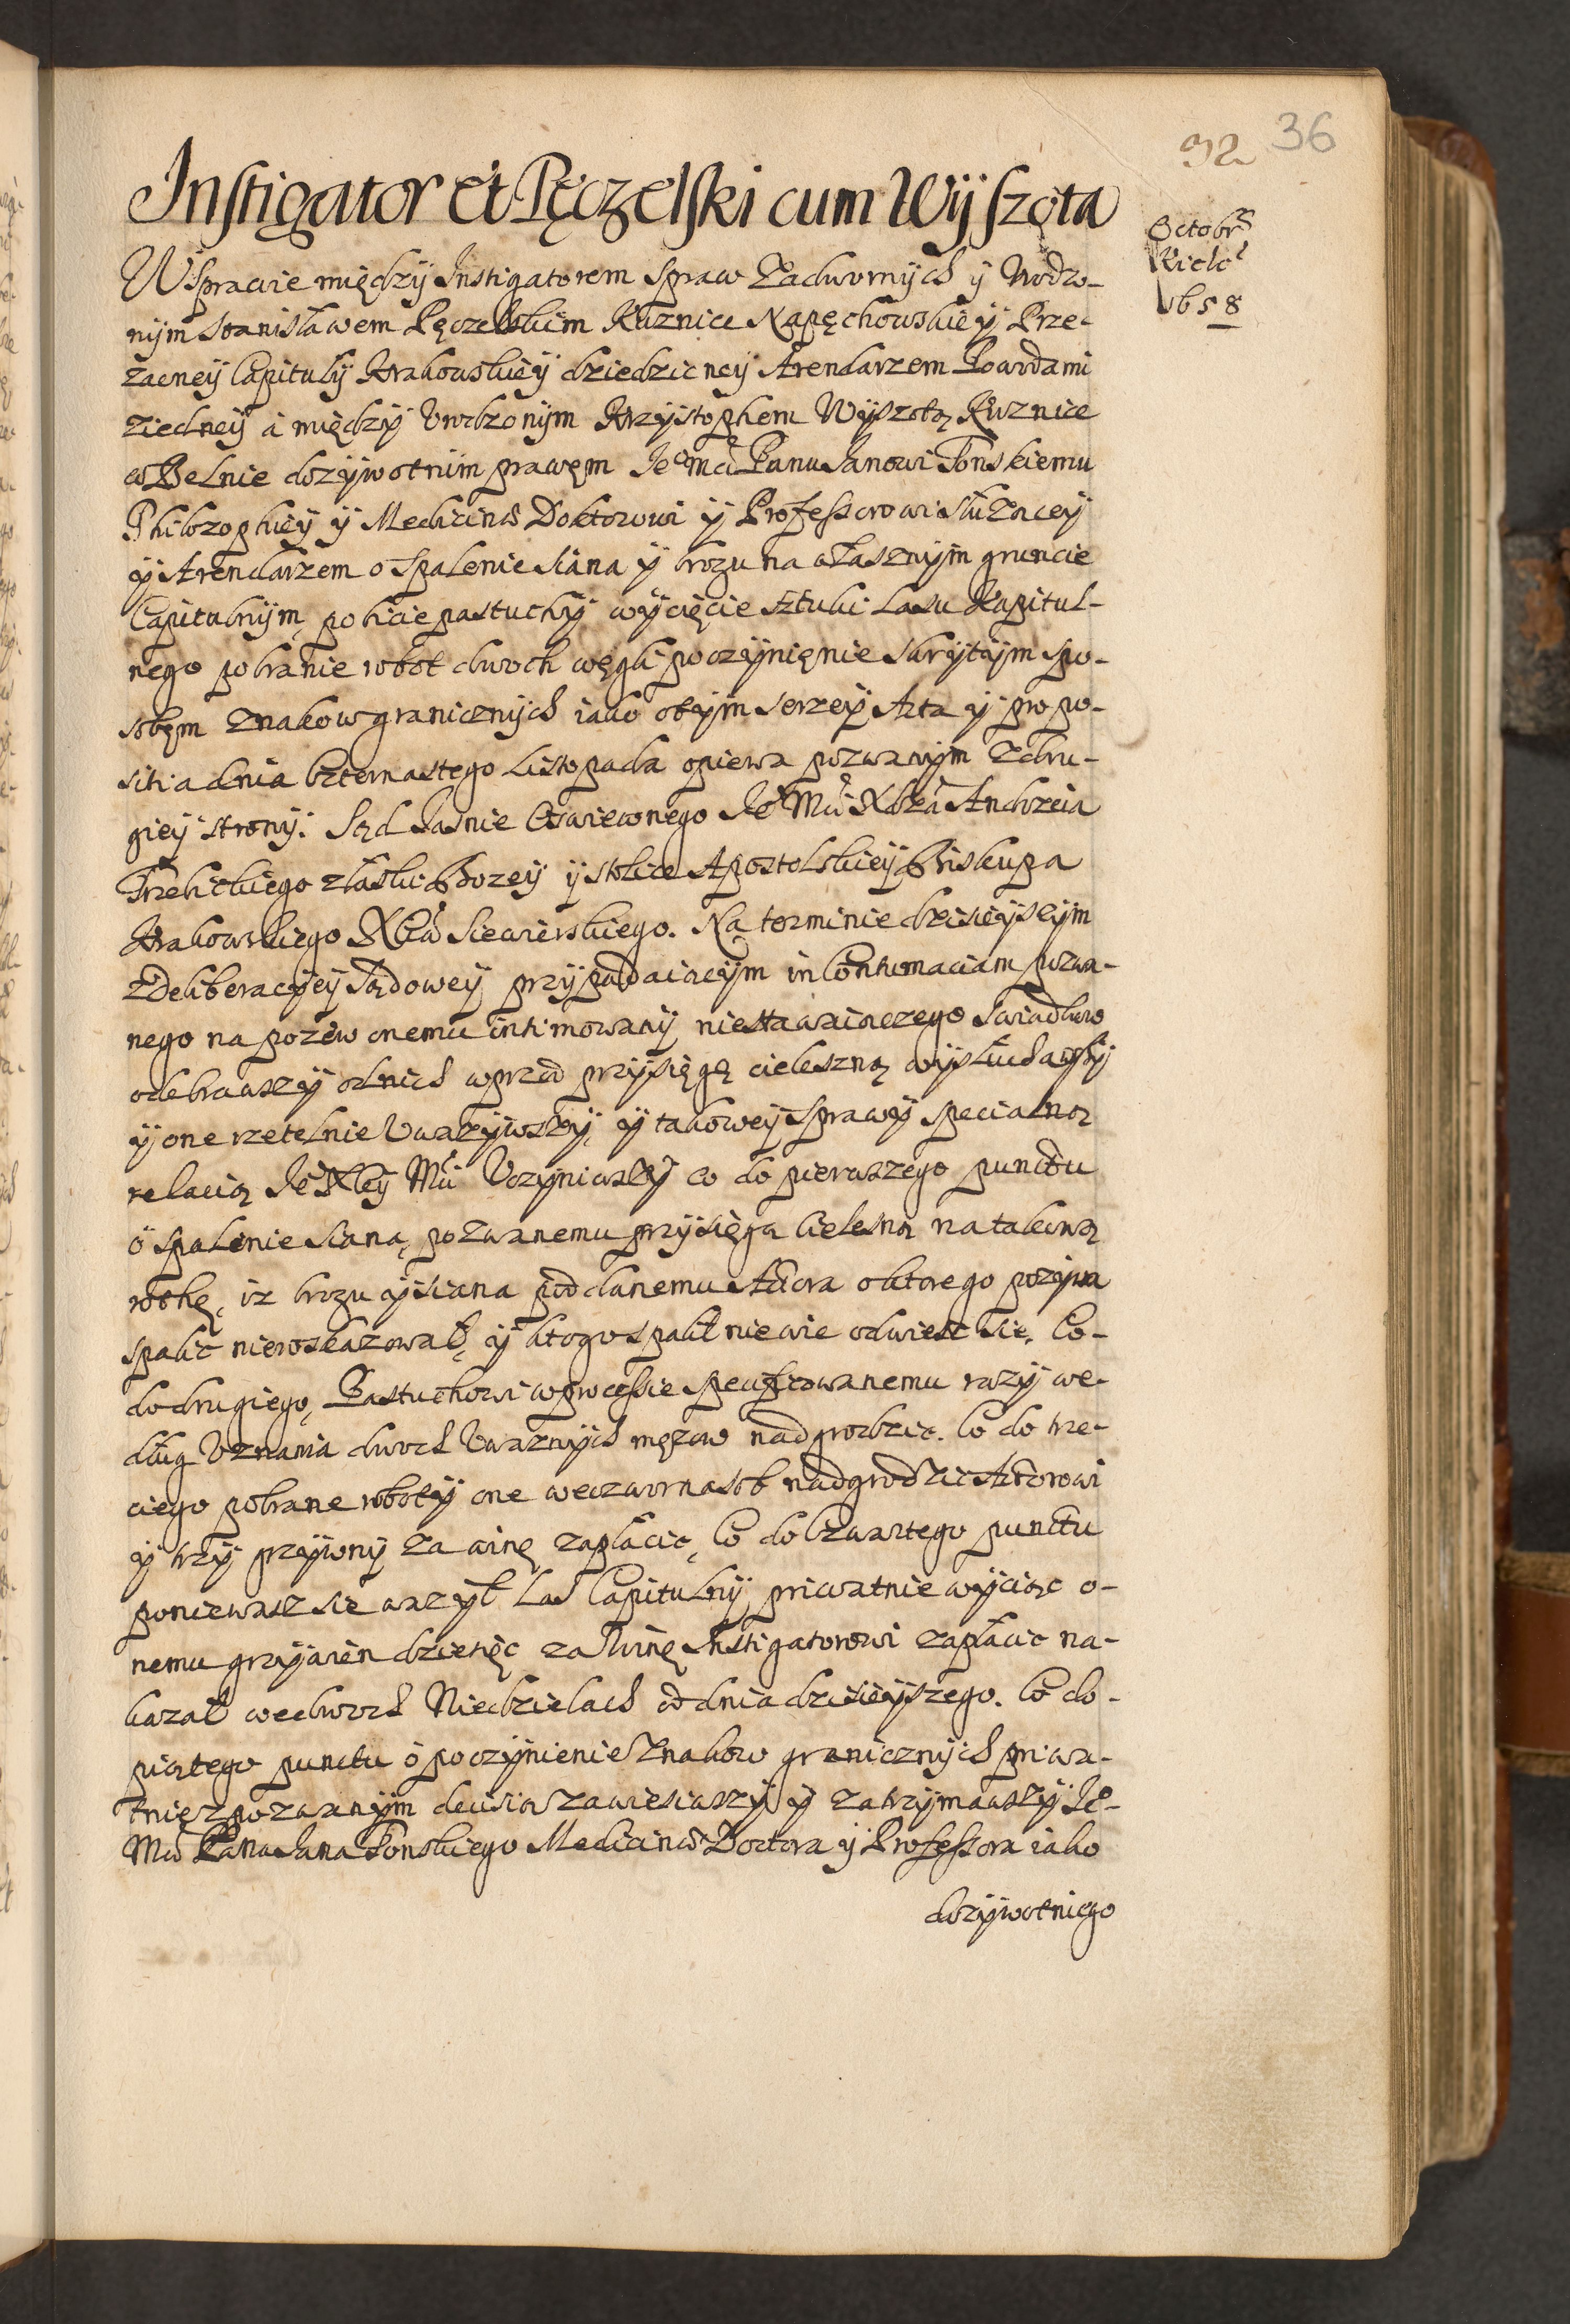 92 36
Instigator et Pęczelski cum Wyszota
Octobr
Kielc
1658
W Sprawie między Instigatorem Spraw Zadwornych y Urodzo-
nym Stanisławem Pęczelskim Kuznice Napęchowskiey Prze-
zacney Capituły Krakowskiey dziedziczney Arendarzem Powodami
ziedney á między Urodzonym Krzysztophem Wyszotą Kuznice
w Belnie dożywotnim prawem Je° Mci Panu Janowi Tonskiemu
Philozophiey y Medicinae Doktorowi y Professorowi służącey
y Arendarzem o Spalenie siana y brogu na własznym gruncie
Capitulnym, pobicie pastuchy wycięcie sztuki Lasu Kapitul-
nego pobranie robot dwoch węgli poczynienie skrytym spo-
sobem Znakow granicznych iako o tym serzey Akta y propo-
sitia dnia Czternastego Listopada opiewa pozwanym zdru-
giey strony. Sąd Jasnie Oswieconego Je° Mci Xdza Andrzeia
Trzebickiego złaski Bożey y stolice Apostolskiey Biskupa
Krakowskiego Xcia Siewierskiego. Na terminie dzisieyszym
z Deliberacyey Sądowey przypadaiącym in Contumaciam pozwa-
nego na pozew onemu intimowany niestawaiączego Swiadkow
odebrawszy od nich wprzod przysięgę cieleszną wysłuchawszy
y one rzetelnie Uważywszy, y takowey Sprawy specialną
relacią Je° Xcey Mci Uczyniwszy co do pierwszego punctu
o Spalenie siana, pozwanemu przysięga Cielesną na takową
rothę, iz brogu y siana poddanemu Actora o ktorego pozywa
spalic nieroskazował, y ktogo spalił niewie odwiesc sie. Co-
do drugiego, Pastuchowi w processie specifikowanemu razy we-
dług Uznania dwoch Uważnych mężow nadgrodzic. Co do trze-
ciego pobrane roboty one weczwornasob nadgrodzic Aktorowi
y trzy grzywny za winę zapłacic, Co do Czwartego punctu
poniewasz sie wazył Las Capitulny priwatnie wyciąc o-
nemu grzywien dziesięc za Winę Instigatorowi zapłacic na-
kazał we dwoch Niedzielach od dnia dzisieyszego. Co do-
piątego punctu o poczynienie Znakow granicznych priwa-
tnie z pozwanym decisią zawiesiwszy y zatrzymawszy Je°-
Mci Pana Jana Tonskiego Medicinae Doctora y Professora iako
dozywotniego